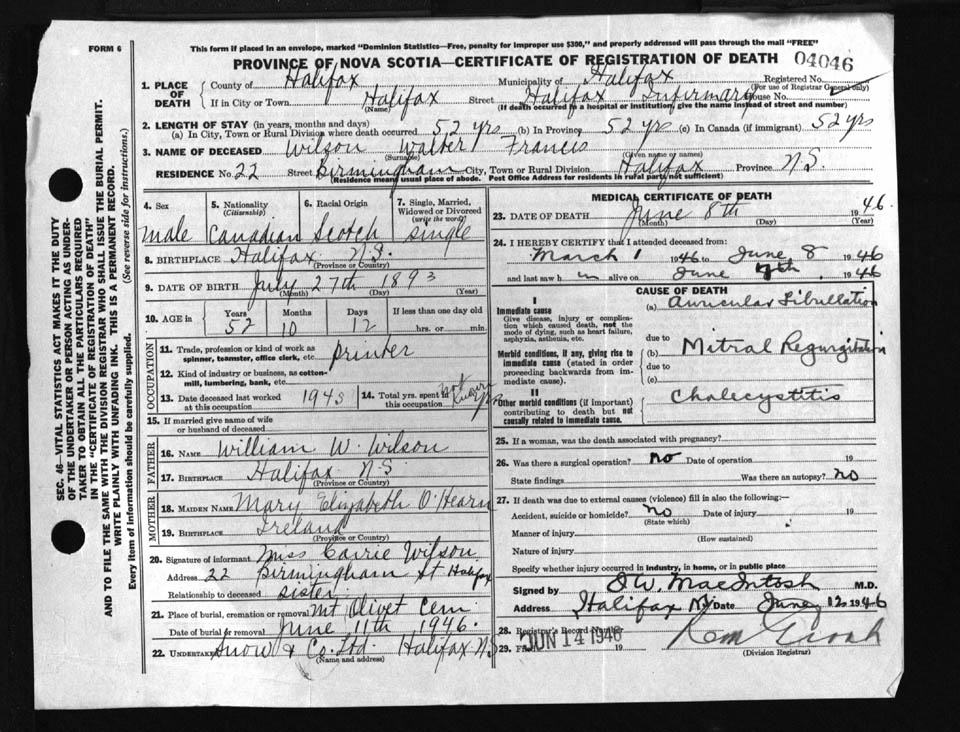 FORM 6
This form if placed in an envelope, marked "Dominion Statistics—Free, penalty for improper use $300," and properly addressed will pass through the mail "FREE"
PROVINCE OF NOVA SCOTIA—CERTIFICATE OF REGISTRATION OF DEATH
04046
1. PLACE OF DEATH
County of Halifax Municipality of Halifax Registered No.
(For use of Registrar General only)
If in City or Town Halifax Street Halifax Infirmary House No.
(Name) (If death occurred in a hospital or institution, give the name instead of street and number)
2. LENGTH OF STAY (in years, months and days)
(a) In City, Town or Rural Division where death occurred 52 yrs (b) In Province 52 yrs (c) In Canada (if immigrant) 52 yrs
3. NAME OF DECEASED Wilson Walter Francis
(Surname) (Given name or names)
RESIDENCE No. 22 Street Birmingham City, Town or Rural Division Halifax Province N.S.
(Residence means usual place of abode. Post Office Address for residents in rural parts not sufficient)
4. Sex male
5. Nationality (Citizenship) Canadian
6. Racial Origin Scotch
7. Single, Married, Widowed or Divorced (write the word) single
8. BIRTHPLACE Halifax N.S.
(Province or Country)
9. DATE OF BIRTH July 27th 1893
(Month) (Day) (Year)
10. AGE in Years 52 Months 10 Days 12 If less than one day old hrs. or min.
OCCUPATION
11. Trade, profession or kind of work as spinner, teamster, office clerk, etc. printer
12. Kind of industry or business, as cotton-mill, lumbering, bank, etc.
13. Date deceased last worked at this occupation 1943
14. Total yrs. spent in this occupation not
15. If married give name of wife or husband of deceased
FATHER
16. NAME William W. Wilson
17. BIRTHPLACE Halifax N.S.
(Province or Country)
MOTHER
18. MAIDEN NAME Mary Elizabeth O'Hearn
19. BIRTHPLACE Ireland
(Province or Country)
20. Signature of informant Miss Carrie Wilson
Address 22 Birmingham St Halifax
Relationship to deceased sister
21. Place of burial, cremation or removal Mt Olivet Cem.
Date of burial or removal June 11th 1946.
22. Undertaker Snow & Co. Ltd. Halifax N.S
(Name and address)
MEDICAL CERTIFICATE OF DEATH
23. DATE OF DEATH June 8th 1946.
(Month) (Day) (Year)
24. I HEREBY CERTIFY that I attended deceased from:
March 1 1946 to June 8 1946
and last saw h im alive on June 7th. 1946
CAUSE OF DEATH
I
Immediate cause
Give disease, injury or complication which caused death, not the mode of dying, such as heart failure, asphyxia, asthenia, etc.
(a) Auricular Fibrillation
due to
Morbid conditions, if any, giving rise to immediate cause (stated in order proceeding backwards from immediate cause).
(b) Mitral Regurgitation
due to
(c)
II
Other morbid conditions (if important) contributing to death but not causally related to immediate cause.
Cholecystitis
25. If a woman, was the death associated with pregnancy?
26. Was there a surgical operation? no Date of operation 19
State findings Was there an autopsy? no
27. If death was due to external causes (violence) fill in also the following:—
Accident, suicide or homicide? no Date of injury 19
(State which)
Manner of injury
(How sustained)
Nature of injury
Specify whether injury occurred in industry, in home, or in public place
Signed by D W. MacIntosh M.D.
Address Halifax NS Date June 12 1946
28. Registrar's Record Number
29. Filed JUN 14 1946 19
(Division Registrar)
SEC. 46—VITAL STATISTICS ACT MAKES IT THE DUTY
OF THE UNDERTAKER OR PERSON ACTING AS UNDER-
TAKER TO OBTAIN ALL THE PARTICULARS REQUIRED
IN THE "CERTIFICATE OF REGISTRATION OF DEATH"
AND TO FILE THE SAME WITH THE DIVISION REGISTRAR WHO SHALL ISSUE THE BURIAL PERMIT.
WRITE PLAINLY WITH UNFADING INK. THIS IS A PERMANENT RECORD.
Every item of information should be carefully supplied. (See reverse side for instructions.)